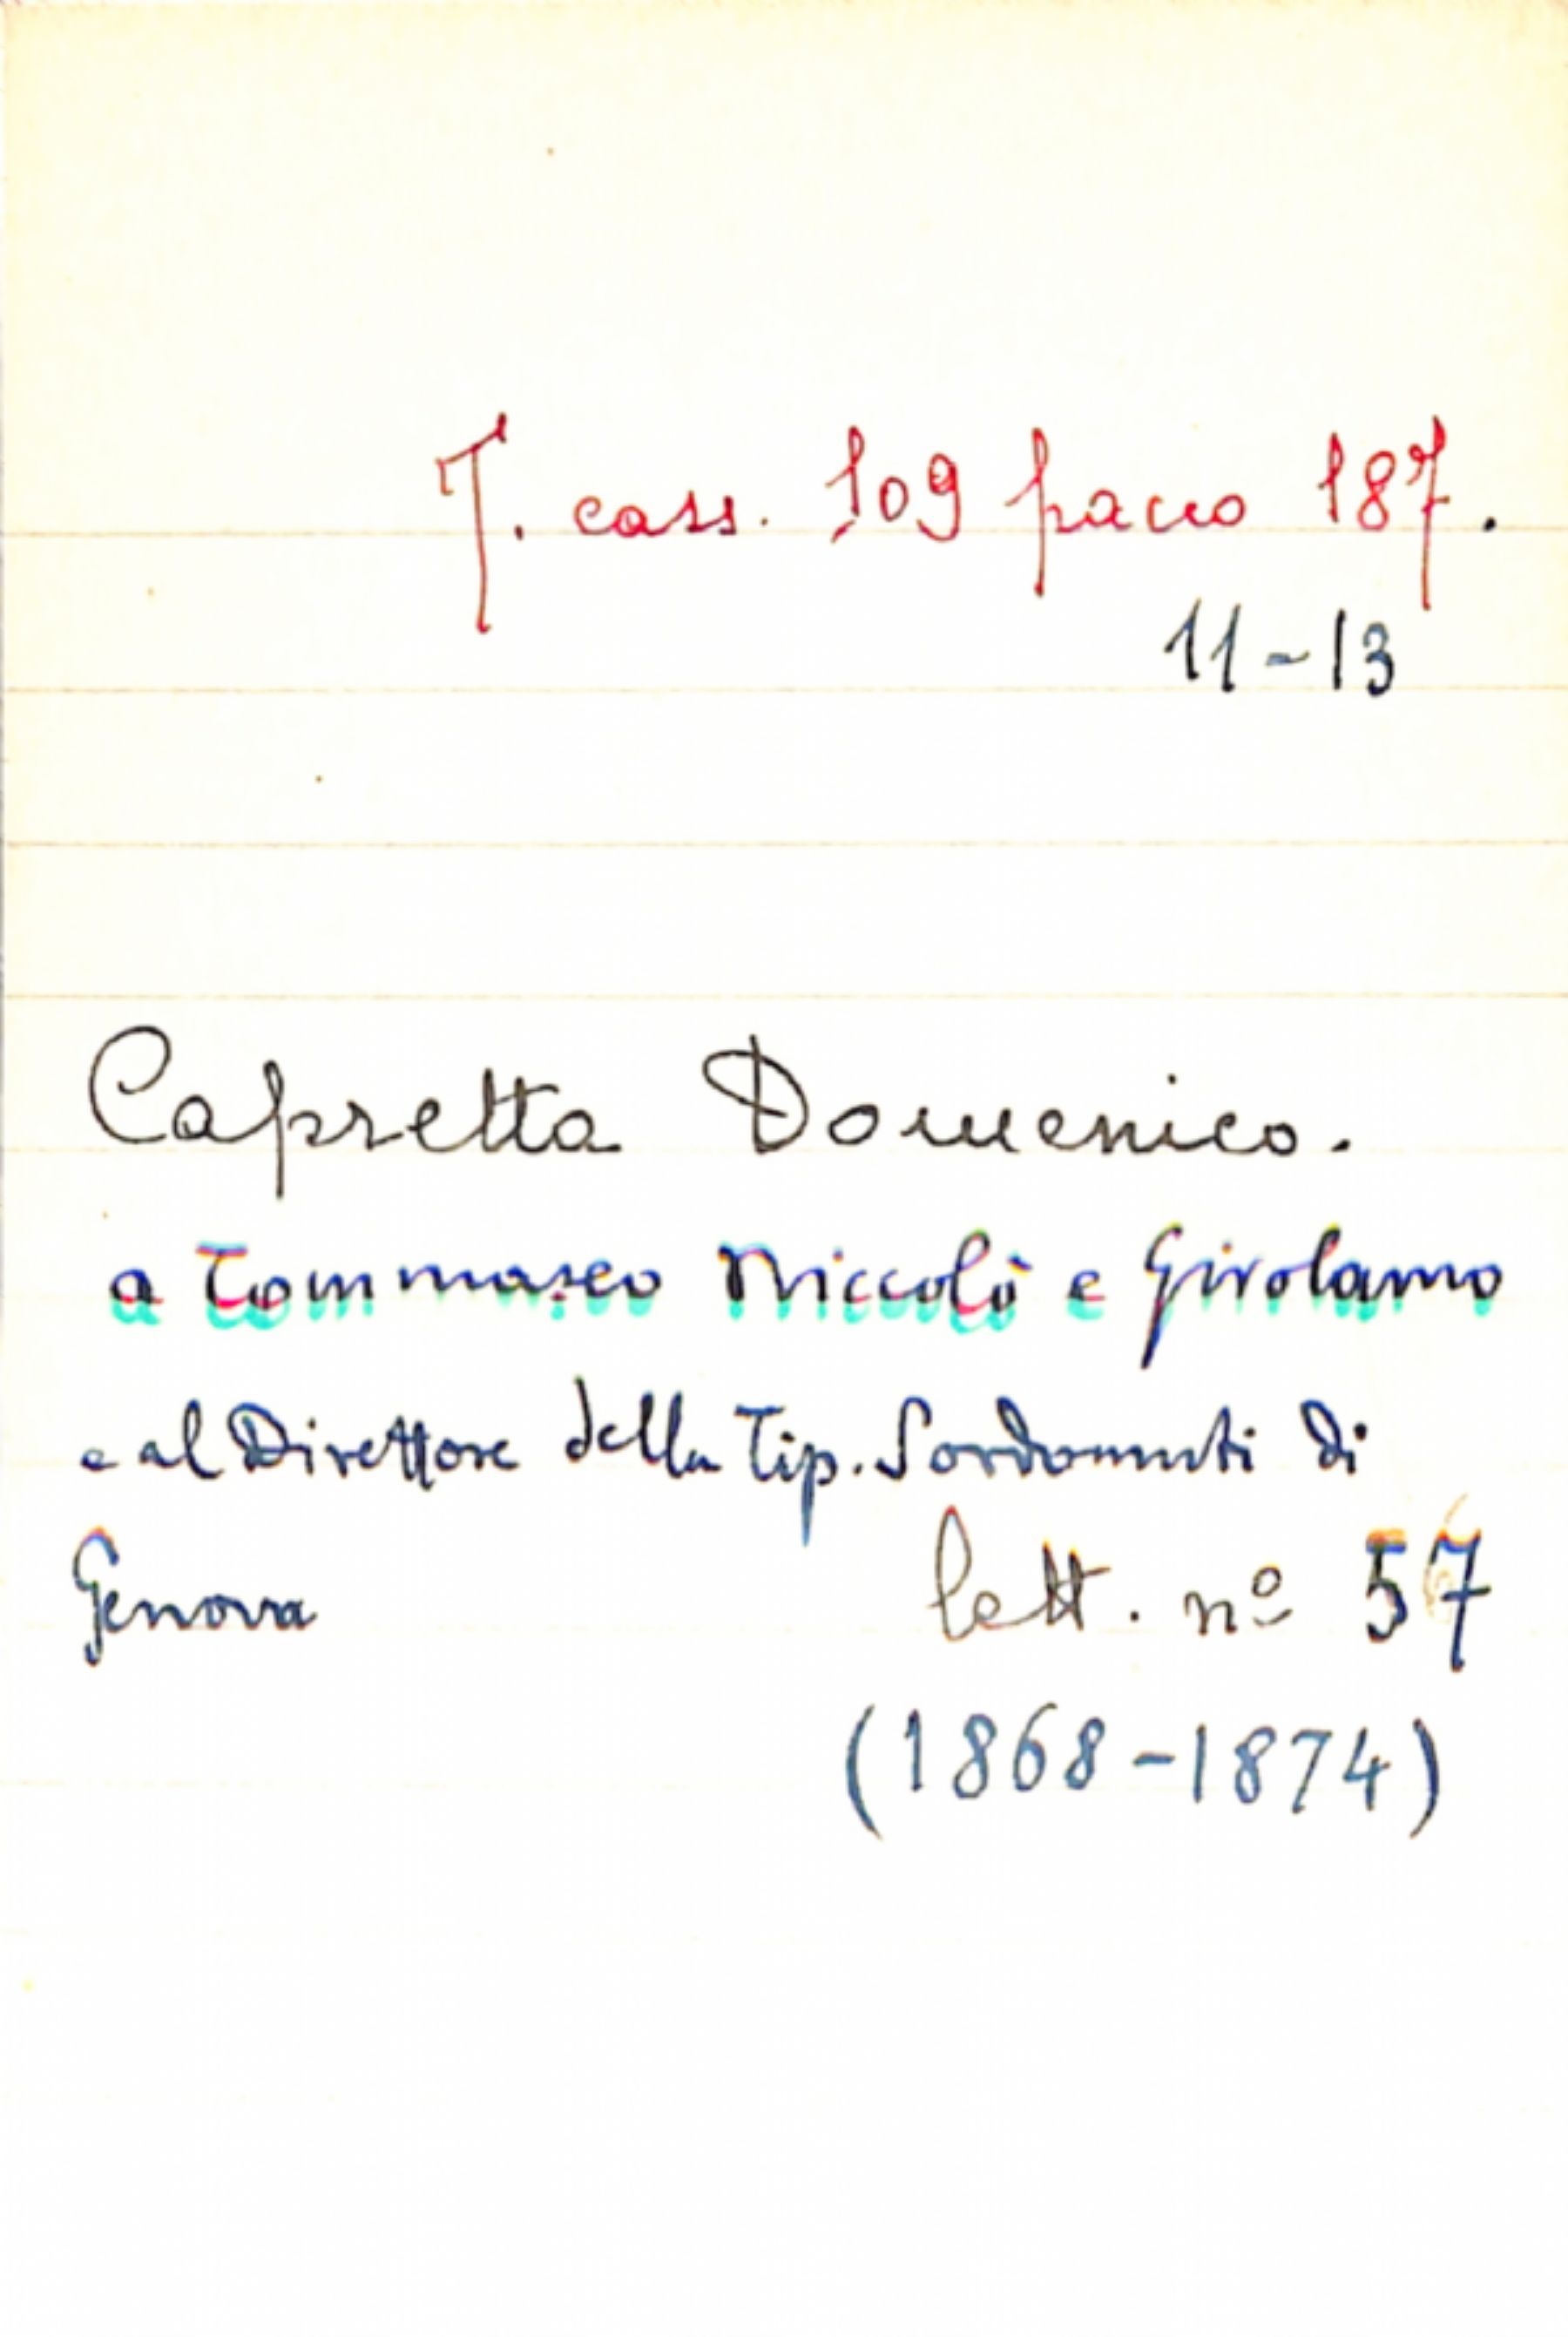 T. cass. 109 pacco 187.
11-13
Capretta Domenico.
a Tommaseo Niccolò e Girolamo
e al Direttore della Tip. Sordomuti di
Genova lett. nº 57
(1868-1874)